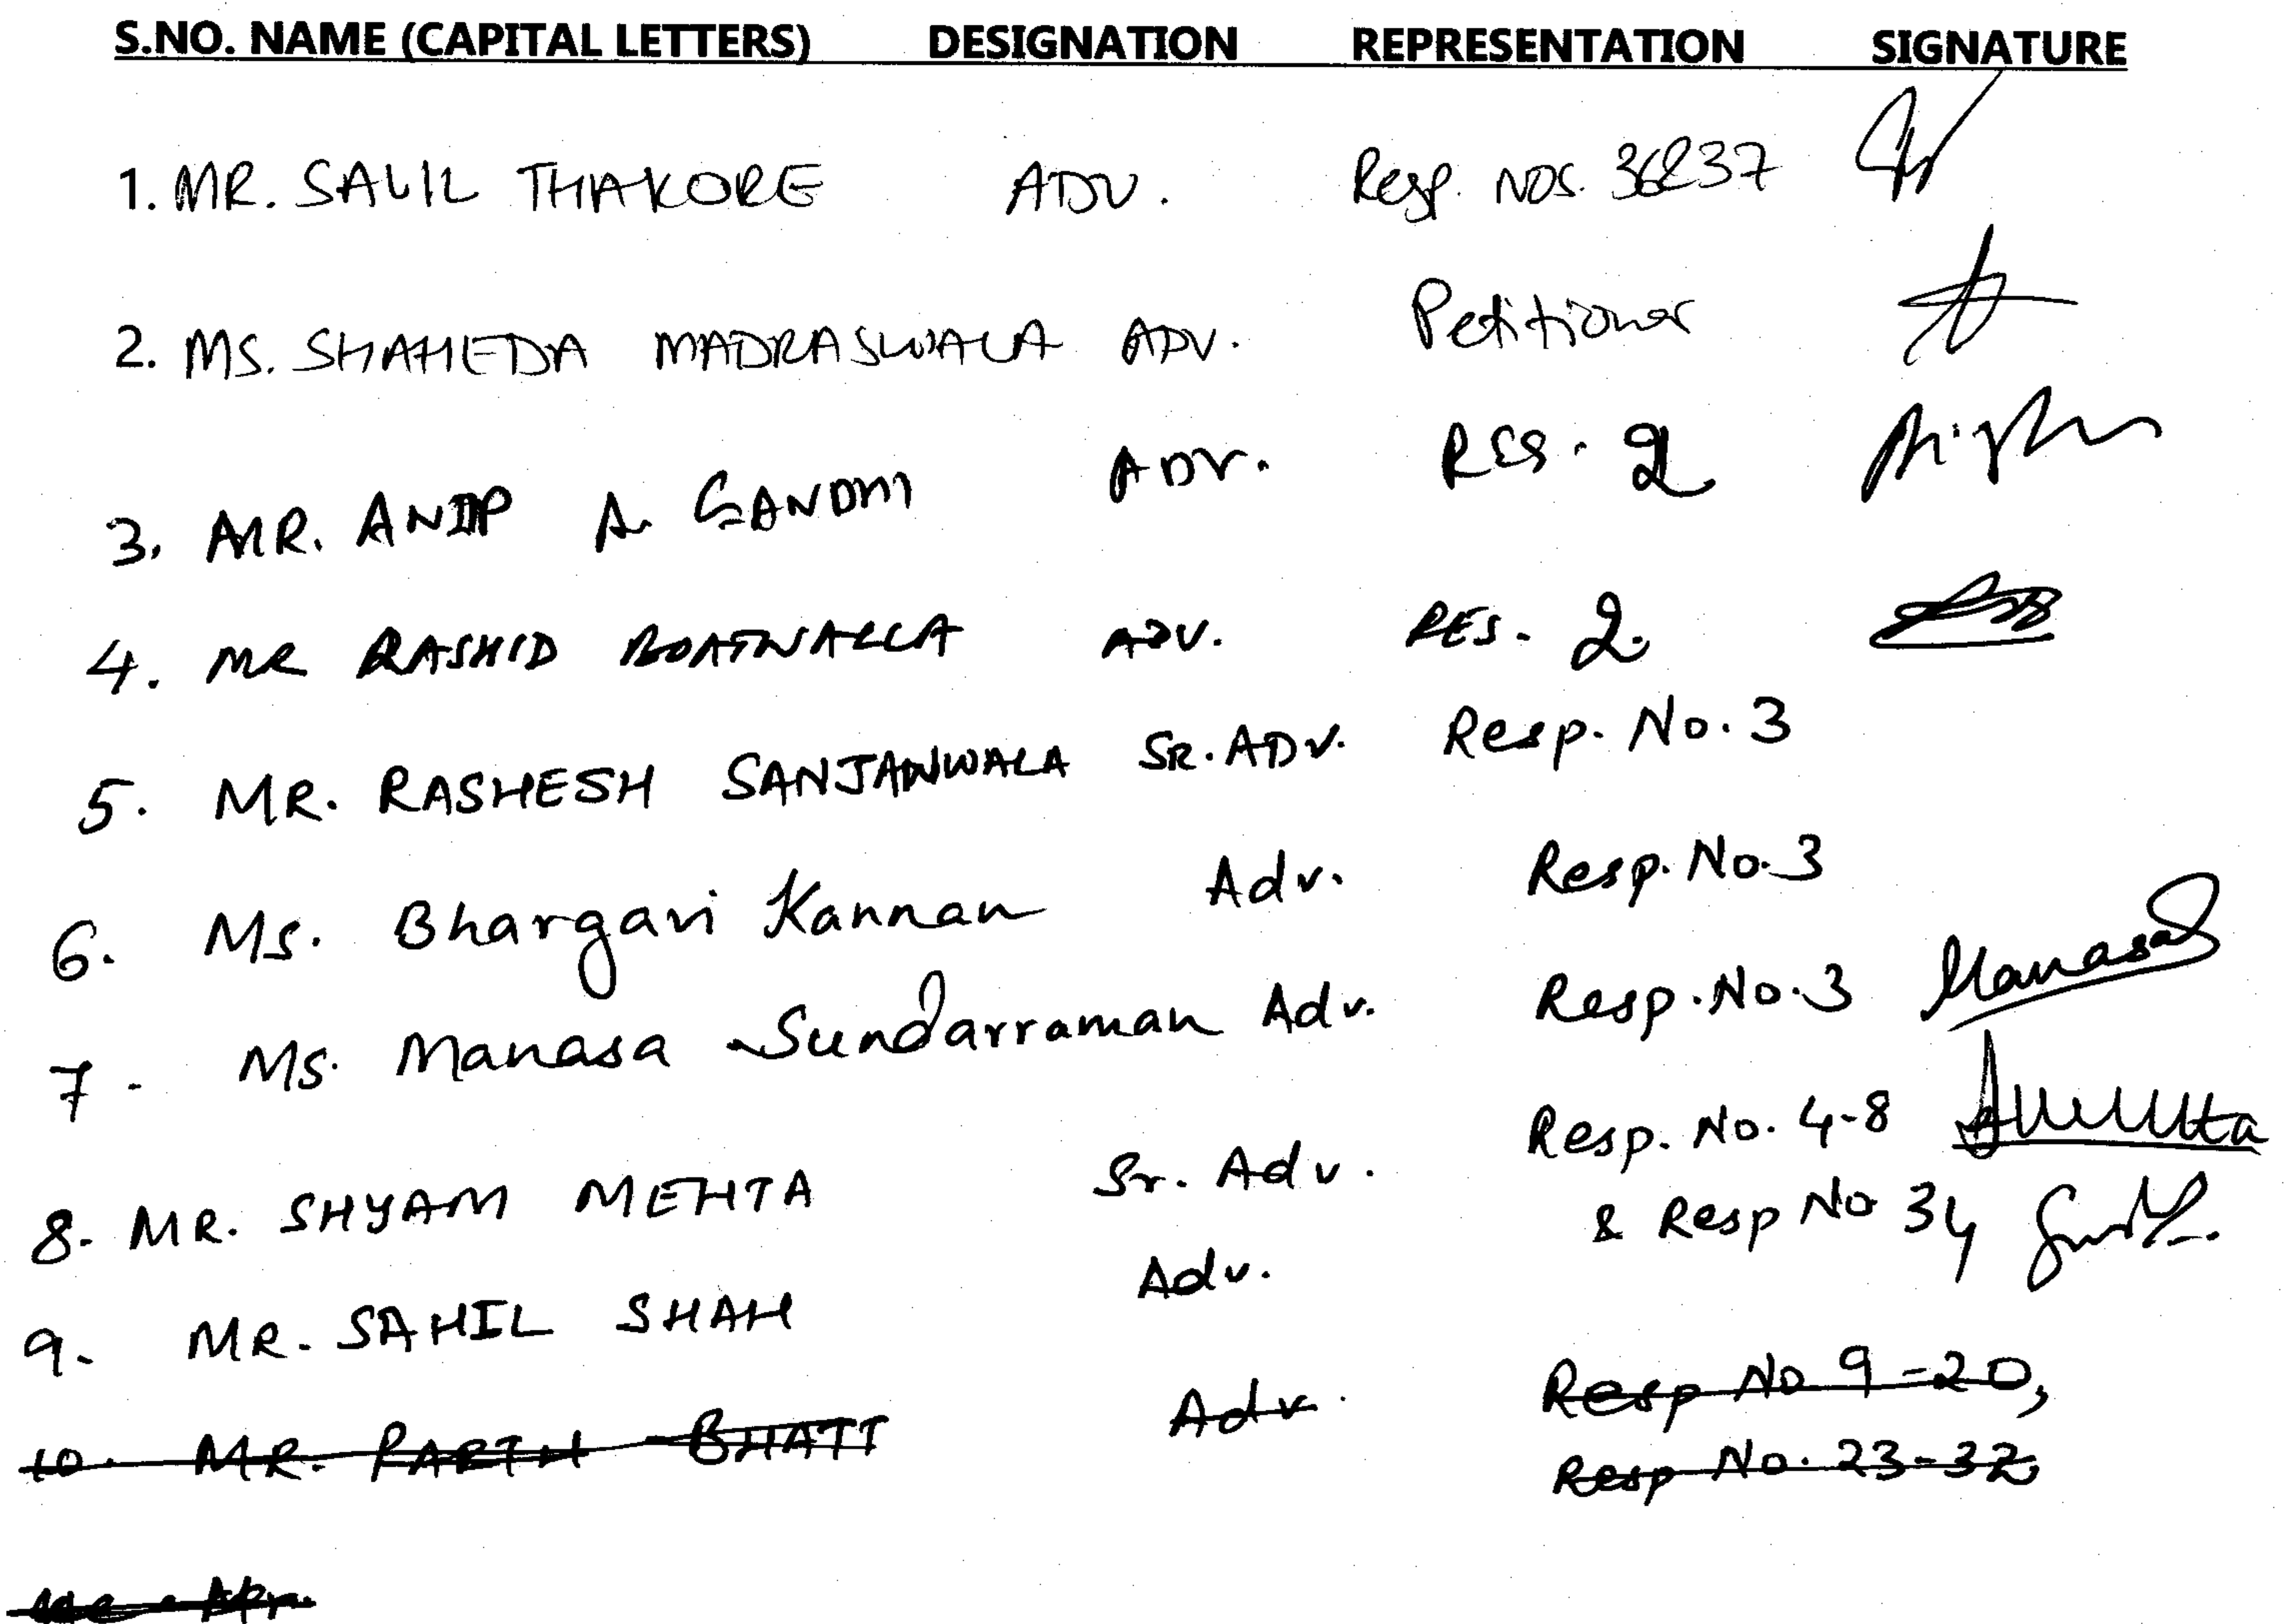 S.NO. NAME (CAPITAL LETTERS) DESIGNATION REPRESENTATION SIGNATURE
1. MR. SALIL THAKORE ADV. Resp. NOS. 36&37
2. MS. SHAHEDA MADRASWALA ADV. Petitioner
3. MR. ANIP A. GANDHI ADV. RES. 2
4. MR RASHID BOATWALLA ADV. RES. 2.
5. MR. RASHESH SANJANWALA SR. ADV. Resp. No. 3
6. Ms. Bhargavi Kannan Adv. Resp. No. 3
7- Ms. Manasa Sundarraman Adv. Resp. No. 3 Manasa
8- MR. SHYAM MEHTA Sr. Adv. Resp. No. 4-8
& Resp No 34
9- MR. SAHIL SHAH Adv.
10. MR. PARTH BHATT Adv. Resp No 9-20,
Resp No. 23-32,